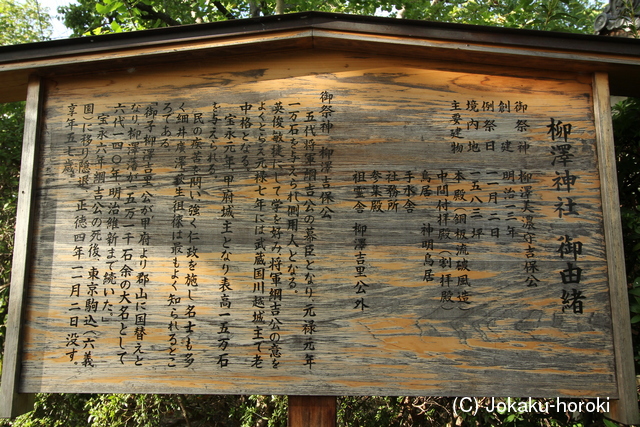 柳澤神社 御由緒
御祭神 柳澤美濃守吉保公
創建 明治十三年
例祭日 十一月二日
境内地 一五八三坪
主要建物 本殿（銅板流破風造）
中間付拝殿（割拝殿）
鳥居 神明鳥居
手水舎
社務所
参集殿
祖霊舎 柳澤吉里公外
御祭神 柳澤吉保公
五代将軍綱吉公の幕臣となり、元禄元年
一万石を与えられ側用人となる。
英俊敏事にして学を好み将軍綱吉公の意を
よくとらえ元禄七年には武蔵国川越城主で老
中格となる。
宝永元年、甲府城主となり表高一五万石
を与えられる。
民の疾苦を問い強く仁政を施し名士も多
く細井廣澤、荻生徂徠は最もよく知られるとこ
ろである。
御子柳澤吉里公が甲府より郡山に国替えと
なり柳澤藩が一五万一千石余の大名として
六代一四〇年明治維新まで続いた。
宝永六年綱吉公の死後、東京駒込（六義
園）に移り隠棲、正徳四年十一月二日没す。
享年五十七歳。
(C) Jokaku-horoki